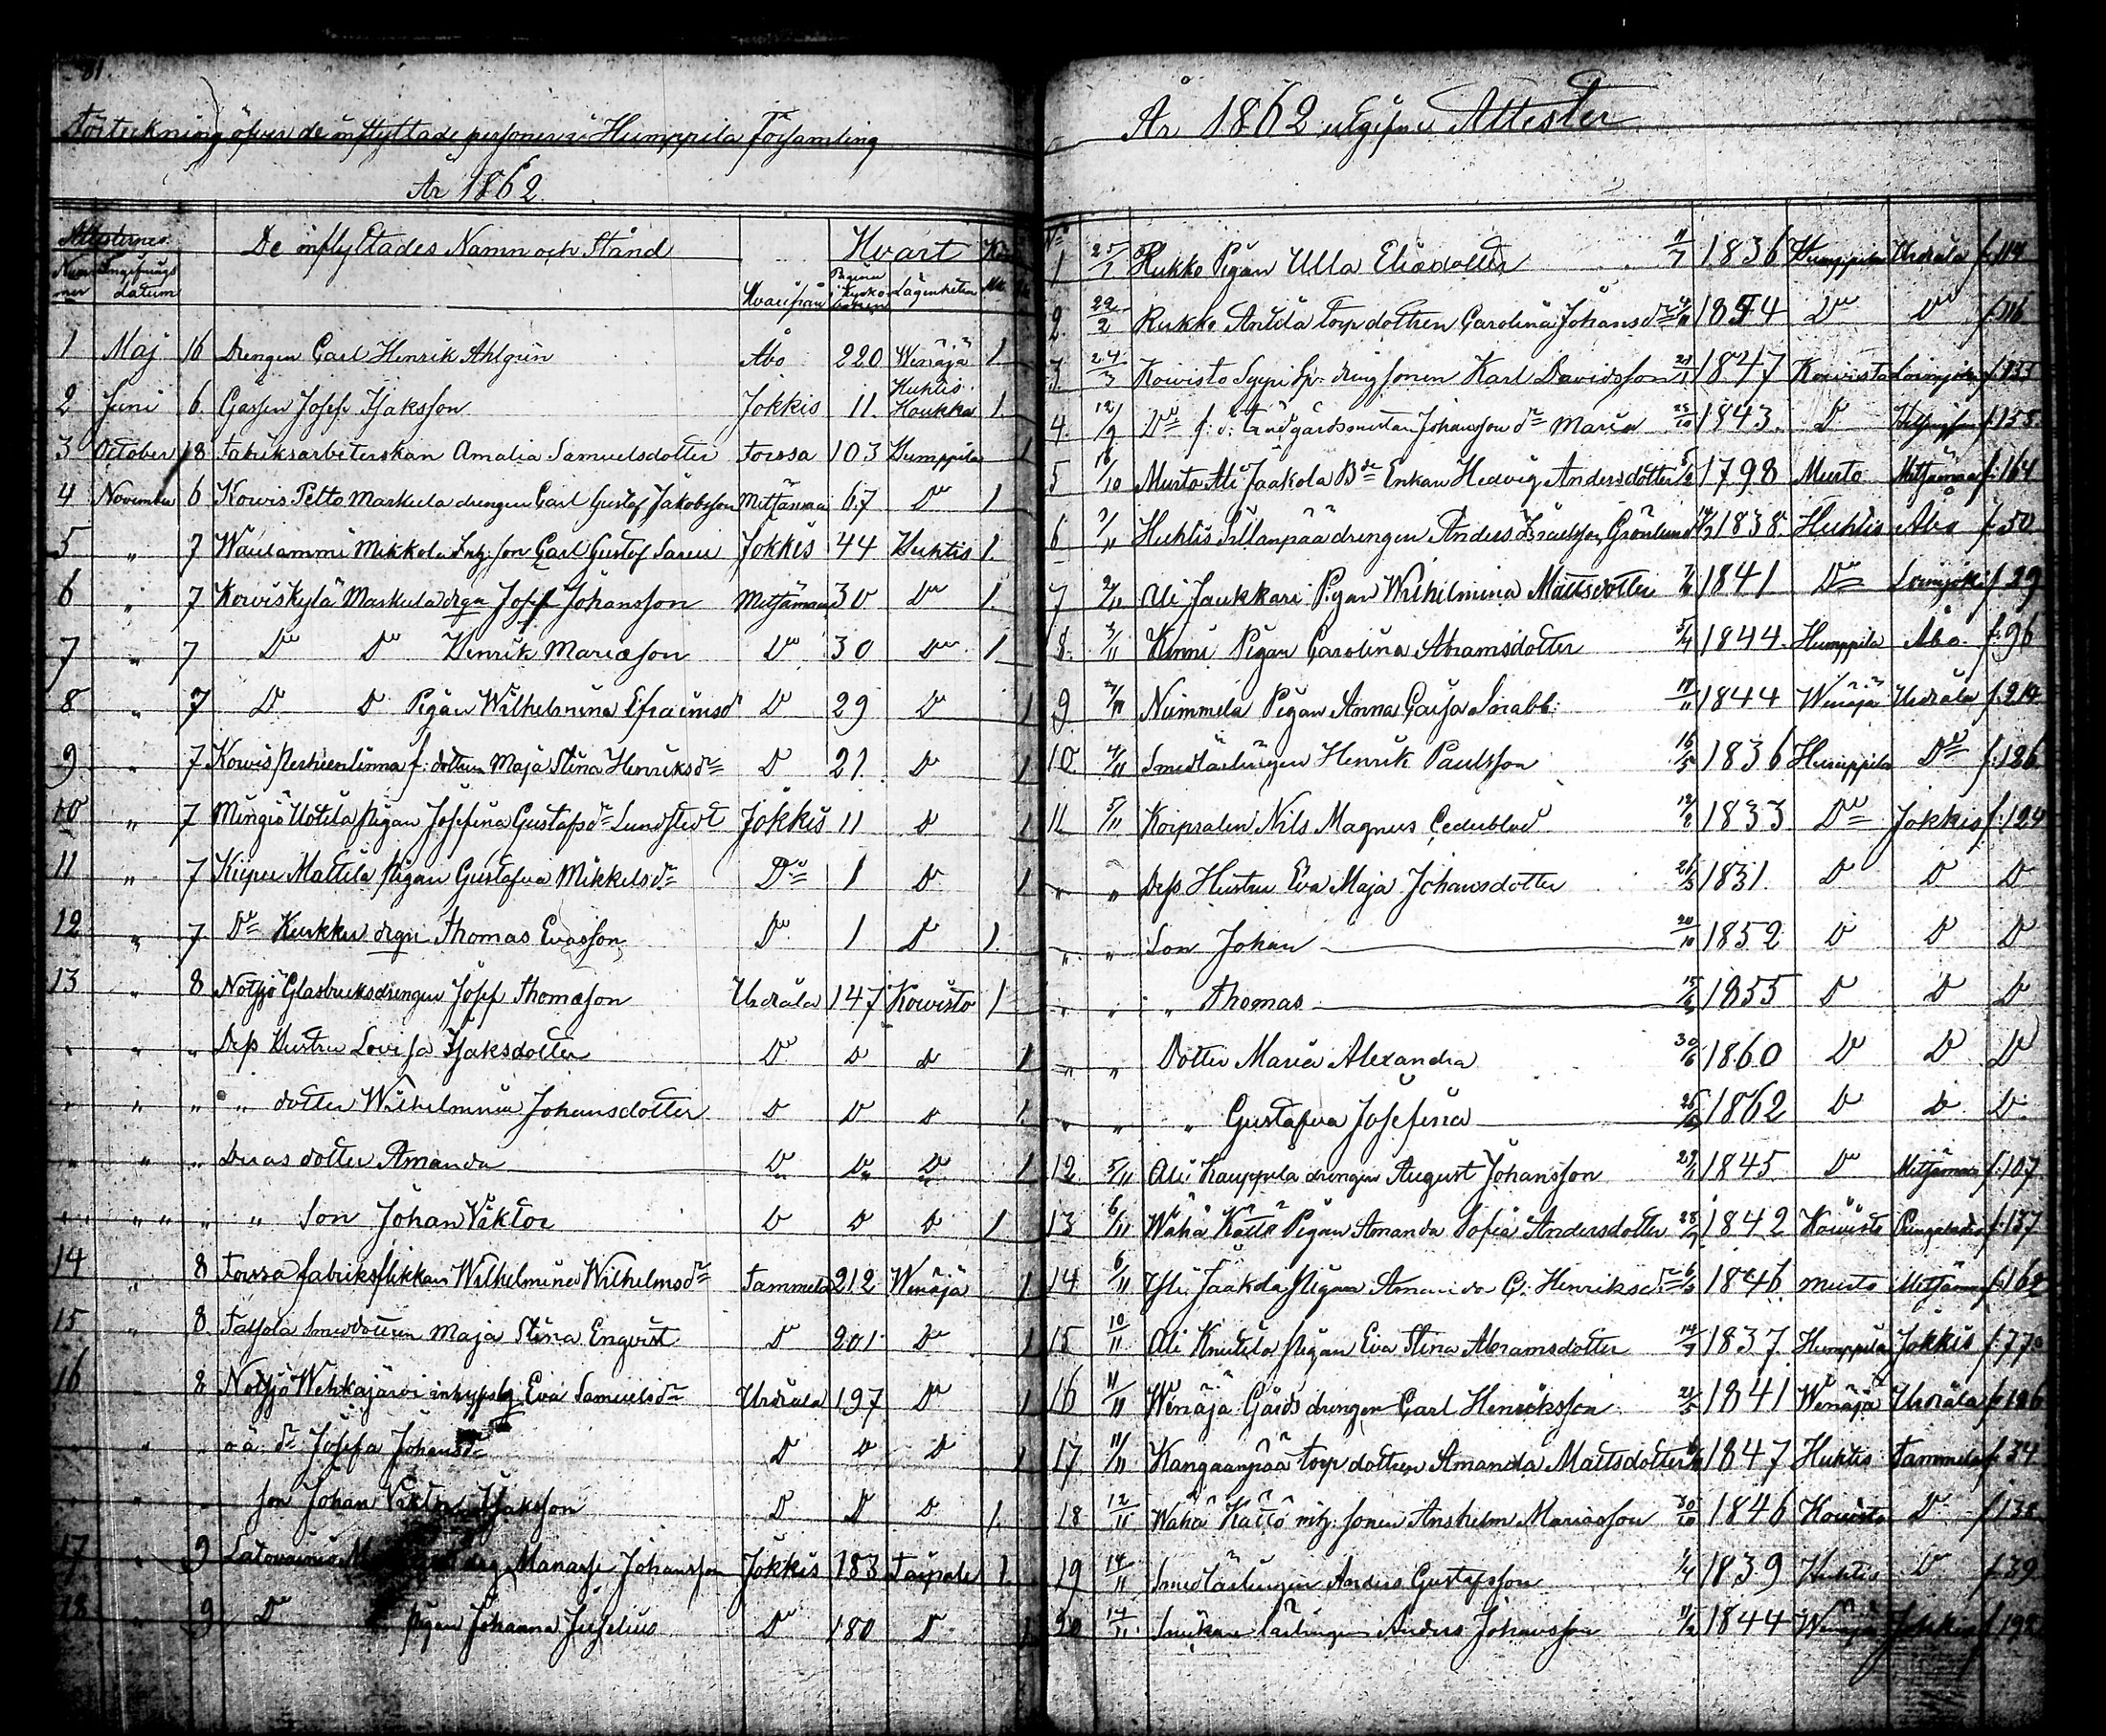 81.
Förteckning öfver de inflyttade personer i Humppila Församling
År 1862.
Attesternes
De inflyttades Namn och Stånd
Hvart
datum
Hvarifrån
Lägenheten
1 Maj 16 drengen Carl Henrik Ahlgrén Åbo 220 Wenäjä 1
2 Juni 6. Gossen Josef Isaksson Jokkis 11. Huhtis Koukku 1.
3 October 18 Fabriksarbeterskan Amalia Samuelsdotter Forssa 103 Humppila 1
4 November 6 Kowis Petto Markula drengen Carl Gustaf Jakobsson Mettämaa 67 Do 1
5 " 7 Waulammi Mikkola Carl Gustaf Jokkis 44 Huhtis 1.
6 " 7 Kowiskylä Markula drgn Josef Johansson Mettämaa 30 Do 1.
7 " 7 Do Do Henrik Mariæson Do 30 Do 1
8 " 7 D D Pigan Wilhelmina Efraimsdr D 29 D 1
9 " 7 Kowis f: dottren Maja Stina Henriksdr D 21. D 1
10 " 7 Mingiö Uotila pigan Josefina Gustafsdr Lundstedt Jokkis 11 D 1
11 " 7 Mattila pigan Gustafva Mikkelsdr Do 1 D 1
12 " 7 Do Kurkku drgn Thomas Evasson Do 1 D 1.
13 " 8 Notsjö Glasbruksdrengen Josef Thomæson Urdiala 147 Kowisto 1
" " " Dess Hustru Lovisa Isaksdotter D D D 1
" " " " dotter Wilhelmina Johansdotter D D D 1.
" " " Deras dotter Amanda D D D 1
" " " " son Johan Viktor D D D 1
14 " 8 Forssa fabriksflickan Wilhelmina Wilhelmsdr Tammela 212 Wenäjä 1
15 " 8. smeddottren Maja Stina Enqvist D 201 D 1
16 " 8 Notsjö Wehkajärvi Eva Samuelsdr Urdiala 197 Do 1
" " " o ä dr Josefa Johansdr D D D 1
" " " son Johan Viktor Isaksson D D D 1.
17 " 9 drg Manasse Johansson Jokkis 183 Taipale 1.
18 " 9 Do pigan Johanna Juselius Do 180 D 1
År 1862 utgifne Attester
No
1 25/1 Rukko Pigan Ulla Eliædotter 11/7 1836 Humppila Urdiala f: 114
2. 22/2 Rukko Anttila torp dottren Carolina Johansdr 1844 Do Do f: 116
3 24/3 Kowisto Seppi drengsonen Karl Davidsson 1847 Kowisto Loimijoki f: 133
4. 12/9 Do f: d: trädgårdsmästar Johansson dr Maria 25/10 1843. D Helsingfors f: 138
5 16/10 Murto Ali Jaakola Bde Enkan Hedvig Andersdotter 1798 Murto Mettämaa f: 164
6 1/11 Huhtis Sillanpää drengen Anders Israelsson Grönlund 1838. Huhtis Åbo f: 50
7 2/11 Ali Jaukkari Pigan Wilhelmina Mattsdotter 1841 Do Loimijoki f: 29
8. 3/11 Kinni Pigan Carolina Abramsdotter 5/4 1844. Humppila Åbo f: 96
9 Nummela Pigan Anna Caisa 1844 Wenäjä Urdiala f: 214
10. 4/11 Smedlärlingen Henrik Paulsson 16/5 1836 Humppila Do f: 126
11 5/11 Korpralen Nils Magnus Cederblad 12/2 1833 Do Jokkis f: 124
" " Dess Hustru Eva Maja Johansdotter 21/3 1831. D D D
" " Son Johan 20/10 1852 D D D
" " " Thomas 15/6 1855 D D D
" " Dotter Maria Alexandra 30/6 1860 D D D
" " " Gustafva Josefina 1862 D D D
12. 5/11 Ali Kauppila drengen August Johansson 1845 D Mettämaa f: 107
13 6/11 Wähä Kättö Pigan Amanda Sofia Andersdotter 1842 Kowisto f: 137
14 6/11 Jaakola pigan Amanda C: Henriksdr 1846 Murto Mettämaa f: 162
15 10/11 Ali Knutila pigan Eva Stina Abramsdotter 1837. Humppila Jokkis f: 77
16 11/11 Wenäjä Gårds drengen Carl Henriksson 21/5 1841 Wenäjä Urdiala f: 186
17. 11/11 Kangaanpää torp dottren Amanda Mattsdotter 1847 Huhtis Tammela f: 34
18 12/11 Wähä Kättö sonen Anshelm Mariæsson 30/10 1846 Kowisto D f: 138
19 14/11 Smedlärlingen Anders Gustafsson 1/4 1839 Huhtis D f: 39
20 14/11 lärlingen Anders Johansson 1844 Wenäjä Jokkis f: 198